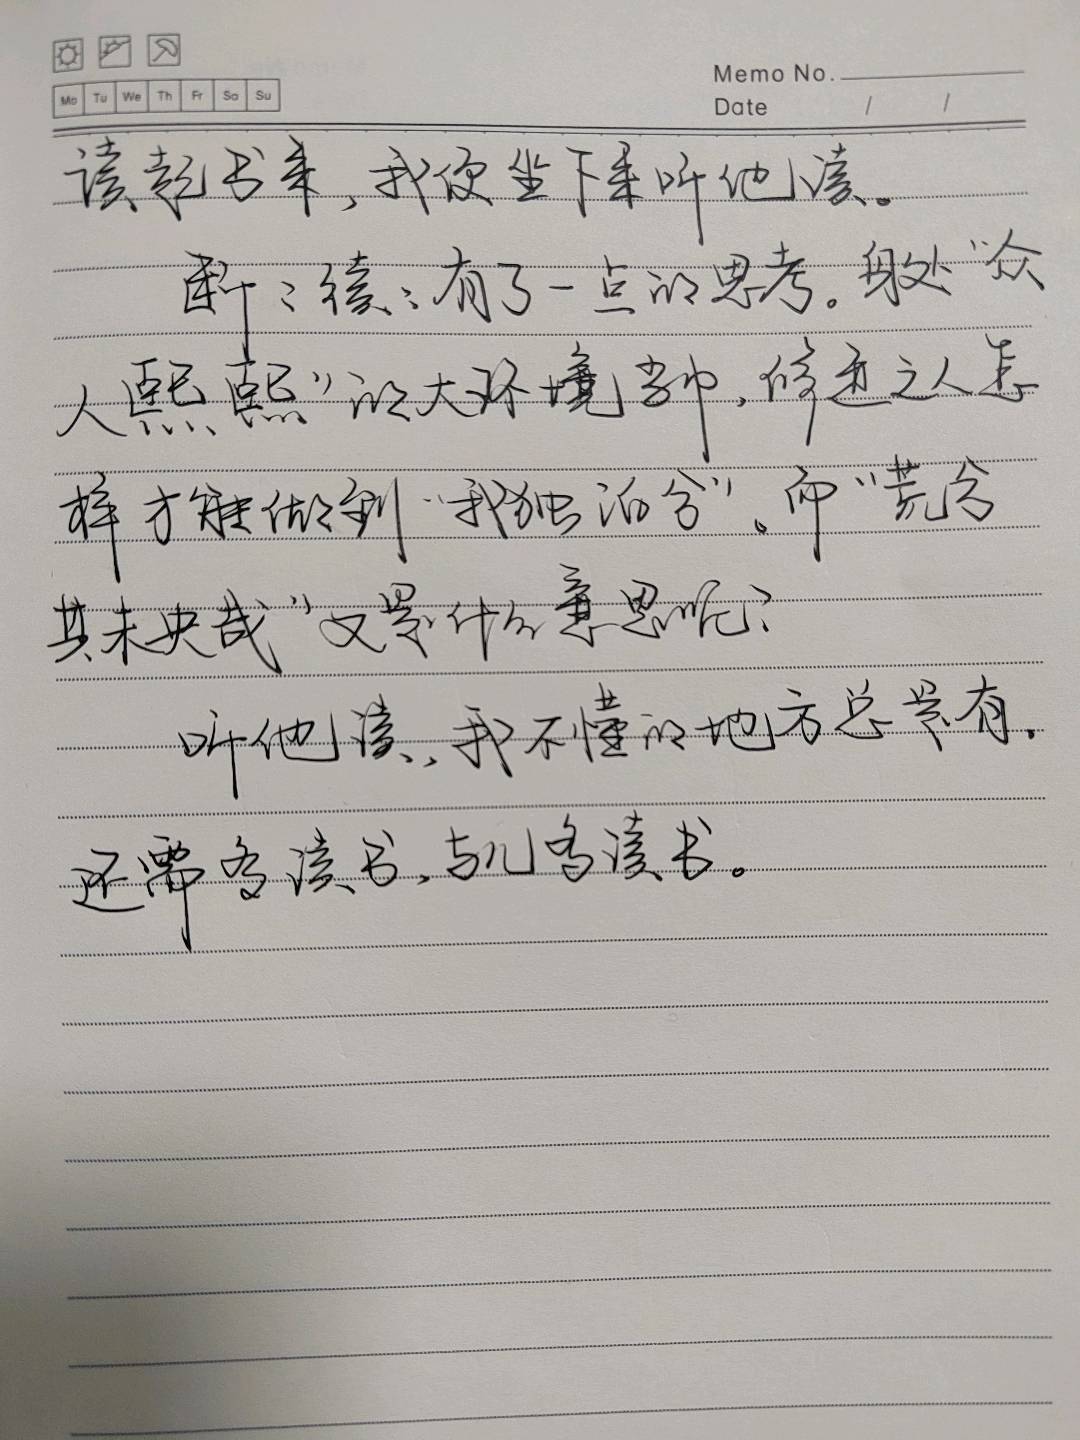 Memo No.
Mo Tu We Th Fr Sa Su
Date / /
读起书来，我便坐下来听他读。
断断续续有了一点的思考。身处“众
人熙熙”的大环境当中，修道之人怎
样才能做到“我独泊兮”。而“荒兮
其未央哉”又是什么意思呢？
听他读，我不懂的地方总是有.
还需多读书，与儿多读书。